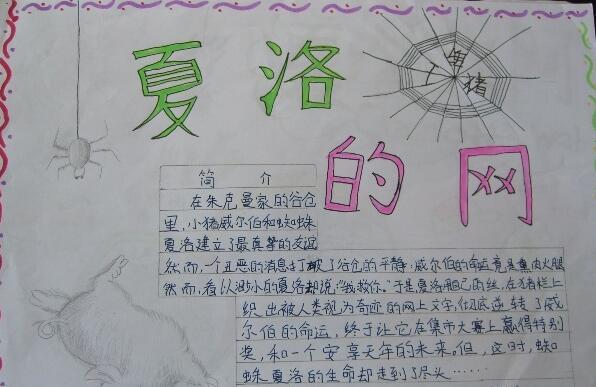 夏洛
的网
了
猪
简介
在朱克曼家的谷仓
里,小猪威尔伯和蜘蛛
夏洛建立了最真挚的友谊
然而,一个丑恶的消息打破了谷仓的平静:威尔伯的命运竟是熏肉火腿
然而,看以渺小的夏洛却说,"我救你。"于是夏洛用自己的丝,在猪栏上
织出被人类视为奇迹的网上文字,彻底逆转了威
尔伯的命运,终于让它在集市大赛上赢得特别
奖,和一个安享天年的未来。但,这时,蜘
蛛夏洛的生命却走到了尽头……